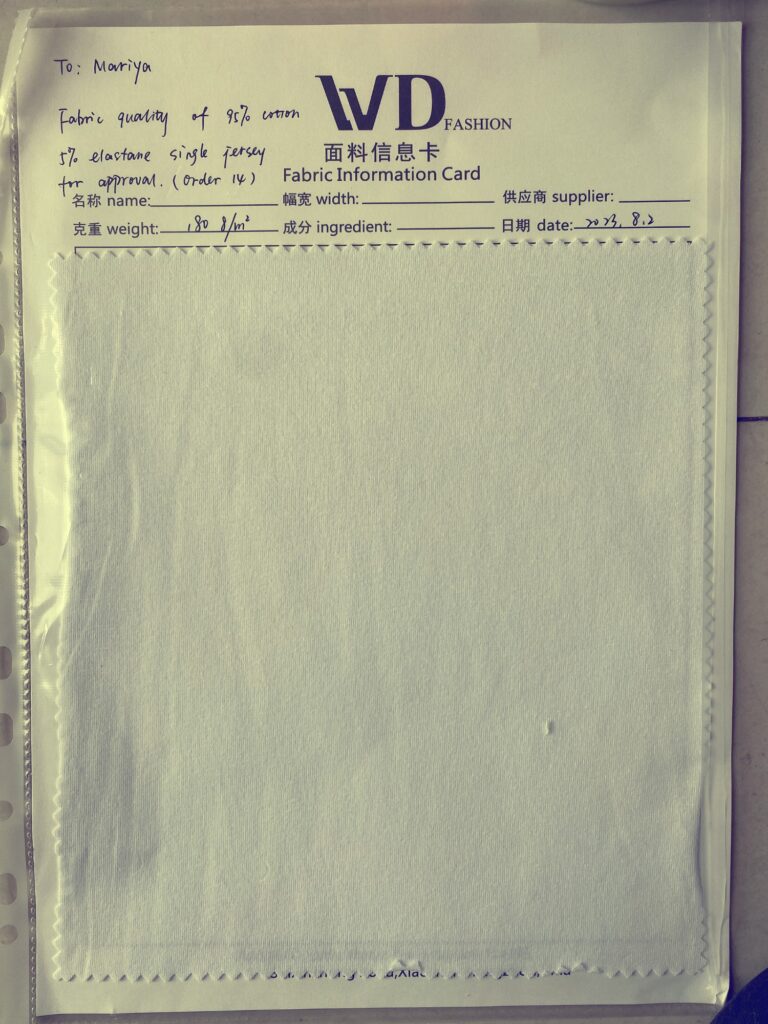 To: Mariya
Fabric quality of 95% cotton
5% elastane single jersey
for approval. (Order 14)
WD FASHION
面料信息卡
Fabric Information Card
名称 name: 幅宽 width: 供应商 supplier:
克重 weight: 180 g/m² 成分 ingredient: 日期 date: 2023. 8.2